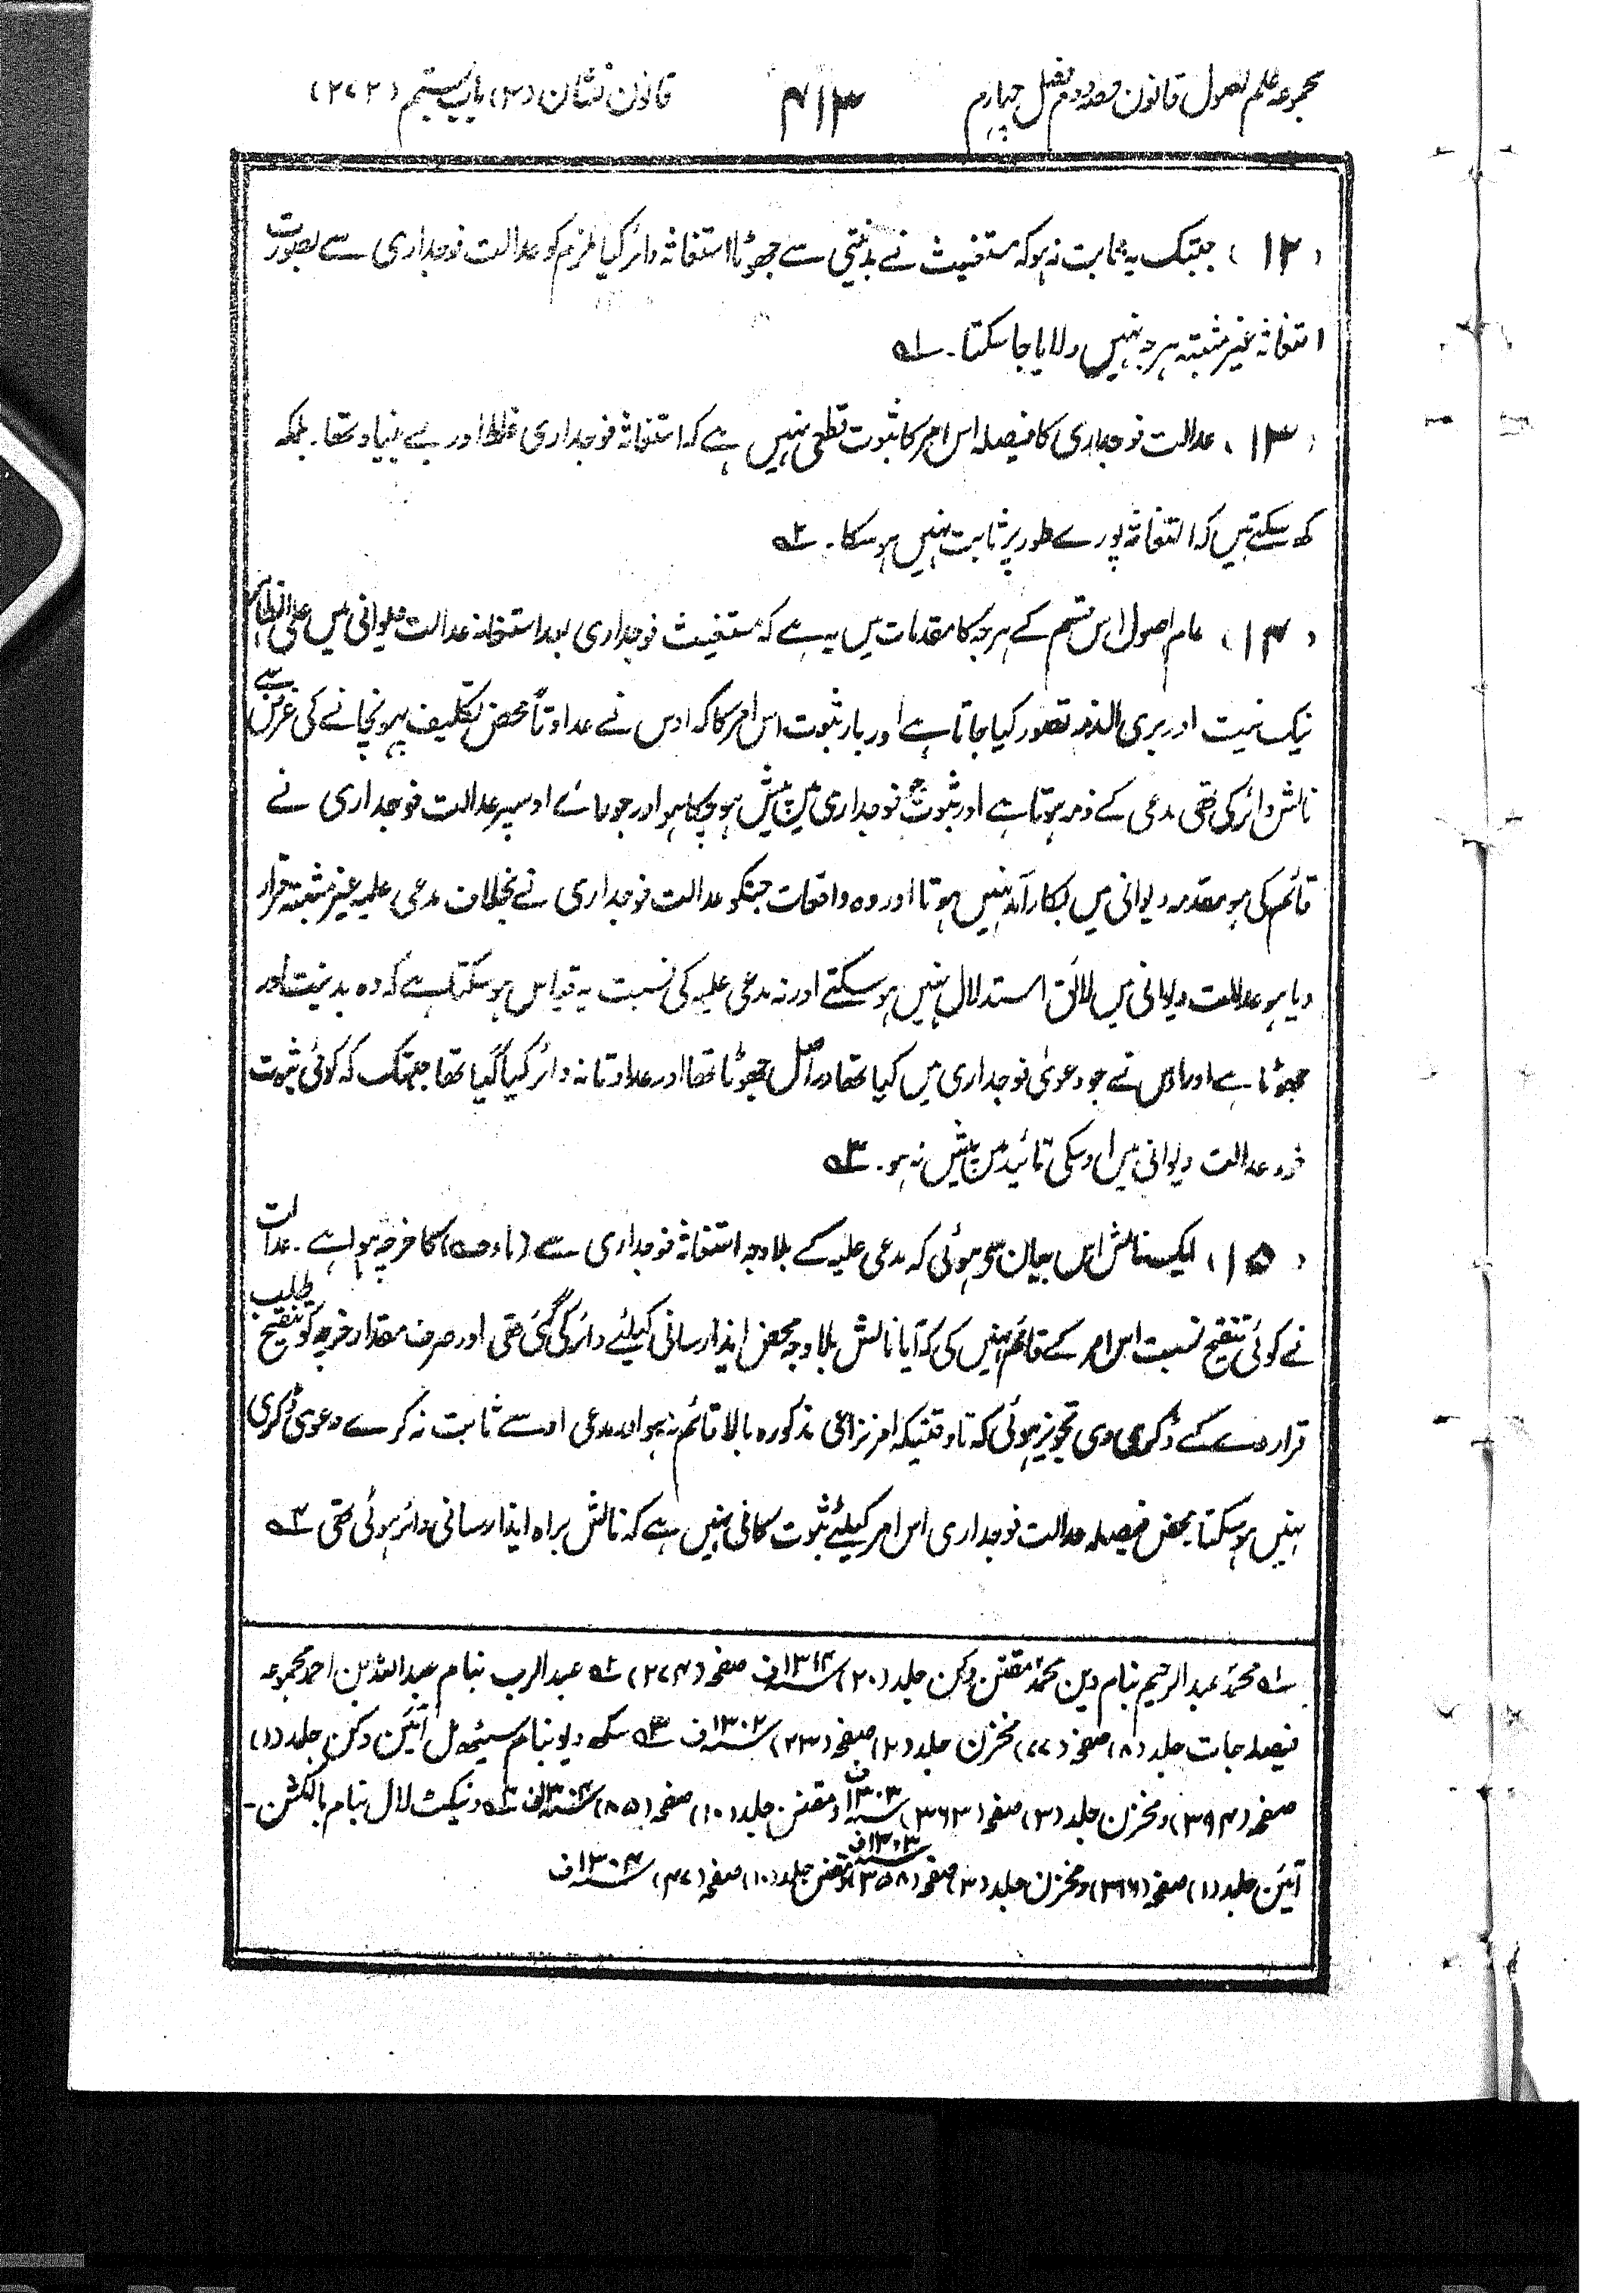 مجموعہ علم اصول قانون حصہ دوم فصل چہارم ۴۱۳ قانون نشان (۲) باب بستم (۲۷۲)
(۱۲) جبتک یہ ثابت نہ ہو کہ مستغیث نے بدنیتی سے جھوٹا استغاثہ دائر کیا ملزم کو عدالت فوجداری سے بصورت
استغاثہ غیر مثبتہ ہرجہ نہیں دلایا جا سکتا۔ ۱؎
(۱۳) عدالت فوجداری کا فیصلہ اس امر کا ثبوت قطعی نہیں ہے کہ استغاثہ فوجداری غلط اور بے بنیاد تھا۔ بلکہ
کہہ سکتے ہیں کہ استغاثہ پورے طور پر ثابت نہیں ہو سکا۔ ۲؎
(۱۴) عام اصول اس قسم کے ہرجہ کا مقدمات میں یہ ہے کہ مستغیث فوجداری بعد استغاثہ عدالت دیوانی میں علی الظاہر
نیک نیت اور بری الذمہ تصور کیا جاتا ہے اور بار ثبوت اس امر کا کہ اوس نے عداوتاً محض تکلیف پہونچانے کی غرض سے
نالش دائر کی تھی مدعی کے ذمہ ہوتا ہے اور ثبوت جو فوجداری میں پیش ہو چکا ہو اور جو رائے اوسپر عدالت فوجداری نے
قائم کی ہو مقدمہ دیوانی میں بکار آمد نہیں ہوتا اور وہ واقعات جنکو عدالت فوجداری نے بخلاف مدعی علیہ غیر مثبتہ قرار
دیا ہو عدالت دیوانی میں لائق استدلال نہیں ہو سکتے اور نہ مدعی علیہ کی نسبت یہ قیاس ہو سکتا ہے کہ وہ بدنیت اور
جھوٹا ہے اور اوس نے جو دعویٰ فوجداری میں کیا تھا دراصل جھوٹا تھا اور عداوتانہ دائر کیا گیا تھا جبتک کہ کوئی ثبوت
خود عدالت دیوانی میں اوسکی تائید میں پیش نہ ہو۔ ۳؎
(۱۵) ایک نالش اس بیان سے ہوئی کہ مدعی علیہ کے بلاوجہ استغاثہ فوجداری سے کا خرچہ ہوا ہے۔ عدالت
نے کوئی تنقیح نسبت اس امر کے قائم نہیں کی کہ آیا نالش بلاوجہ محض ایذا رسانی کیلئے دائر کی گئی تھی اور صرف مقدار خرچہ کو تنقیح طلب
قرار دے کے ڈگری دی تجویز ہوئی کہ تاوقتیکہ امر نزاعی مذکورہ بالا قائم نہ ہو اور مدعی اوسے ثابت نہ کرے دعویٰ ڈگری
نہیں ہو سکتا محض فیصلہ عدالت فوجداری اس امر کیلئے ثبوت کافی نہیں ہے کہ نالش براہ ایذا رسانی دائر ہوئی تھی ۴؎
۱؎ محمد عبدالرحیم بنام دین محمد مقنن دکن جلد (۲۰) ۱۳۱۴ف صفحہ (۲۷۴) ۲؎ عبدالرب بنام عبداللہ بن احمد مجموعہ
فیصلہ جات جلد (۸) صفحہ (۷۷) مخزن جلد (۲) صفحہ (۲۳) ۱۳۰۲ف ۳؎ سکھ دیو بنام سیٹھ مل آئین دکن جلد (۱)
صفحہ (۳۹۴) و مخزن جلد (۳) صفحہ (۳۶۳) ۱۳۰۳ف و مقنن جلد (۱۰) صفحہ (۸۵) ۱۳۰۴ف ۴؎ ونیکٹ لال بنام بالکشن۔
آئین جلد (۱) صفحہ (۳۹۶) و مخزن جلد (۳) صفحہ (۳۵۸) ۱۳۰۳ف و مقنن جلد (۱۰) صفحہ (۴۷) ۱۳۰۴ف